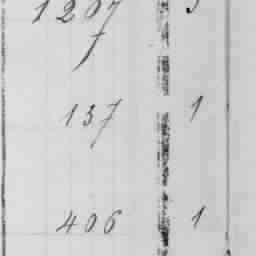 1207 5
7
137 1
406 1